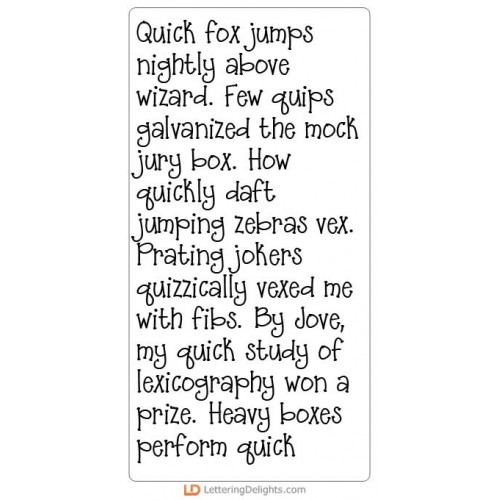 Quick fox jumps
nightly above
wizard. Few quips
galvanized the mock
jury box. How
quickly daft
jumping zebras vex.
Prating jokers
quizzically vexed me
with fibs. By Jove,
my quick study of
lexicography won a
prize. Heavy boxes
perform quick
LD LetteringDelights.com